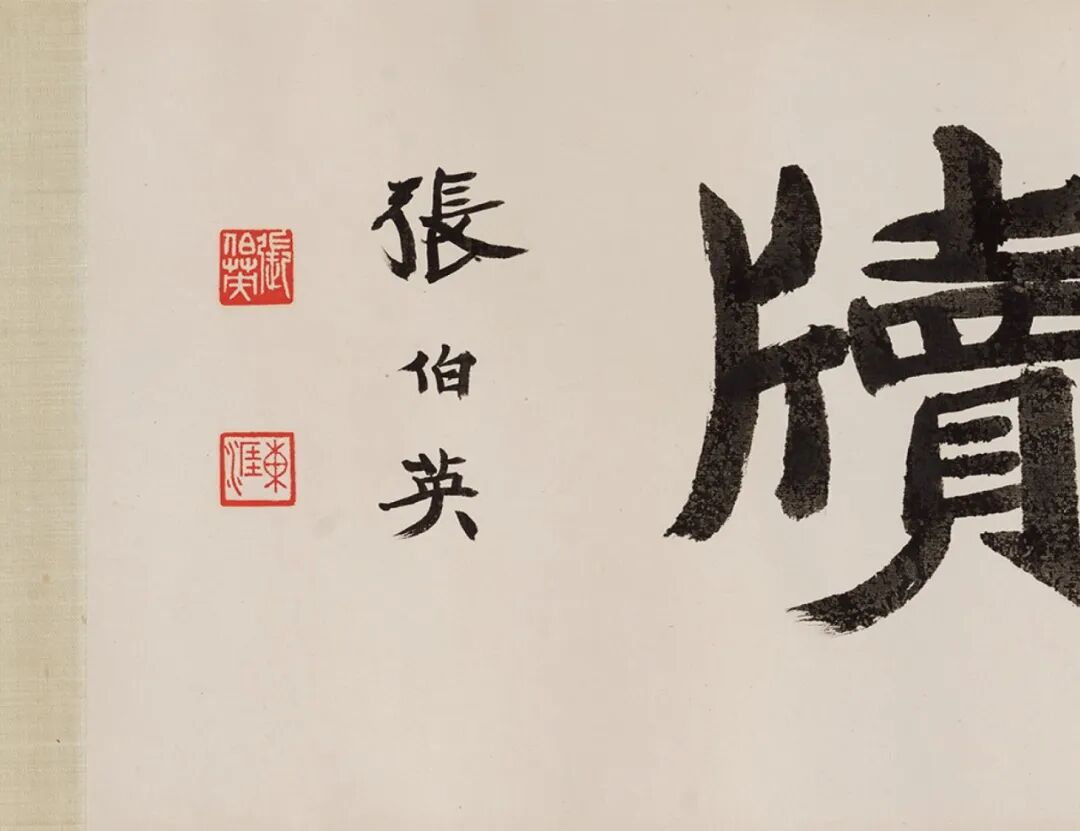 牘
張伯英
張伯英
東涯